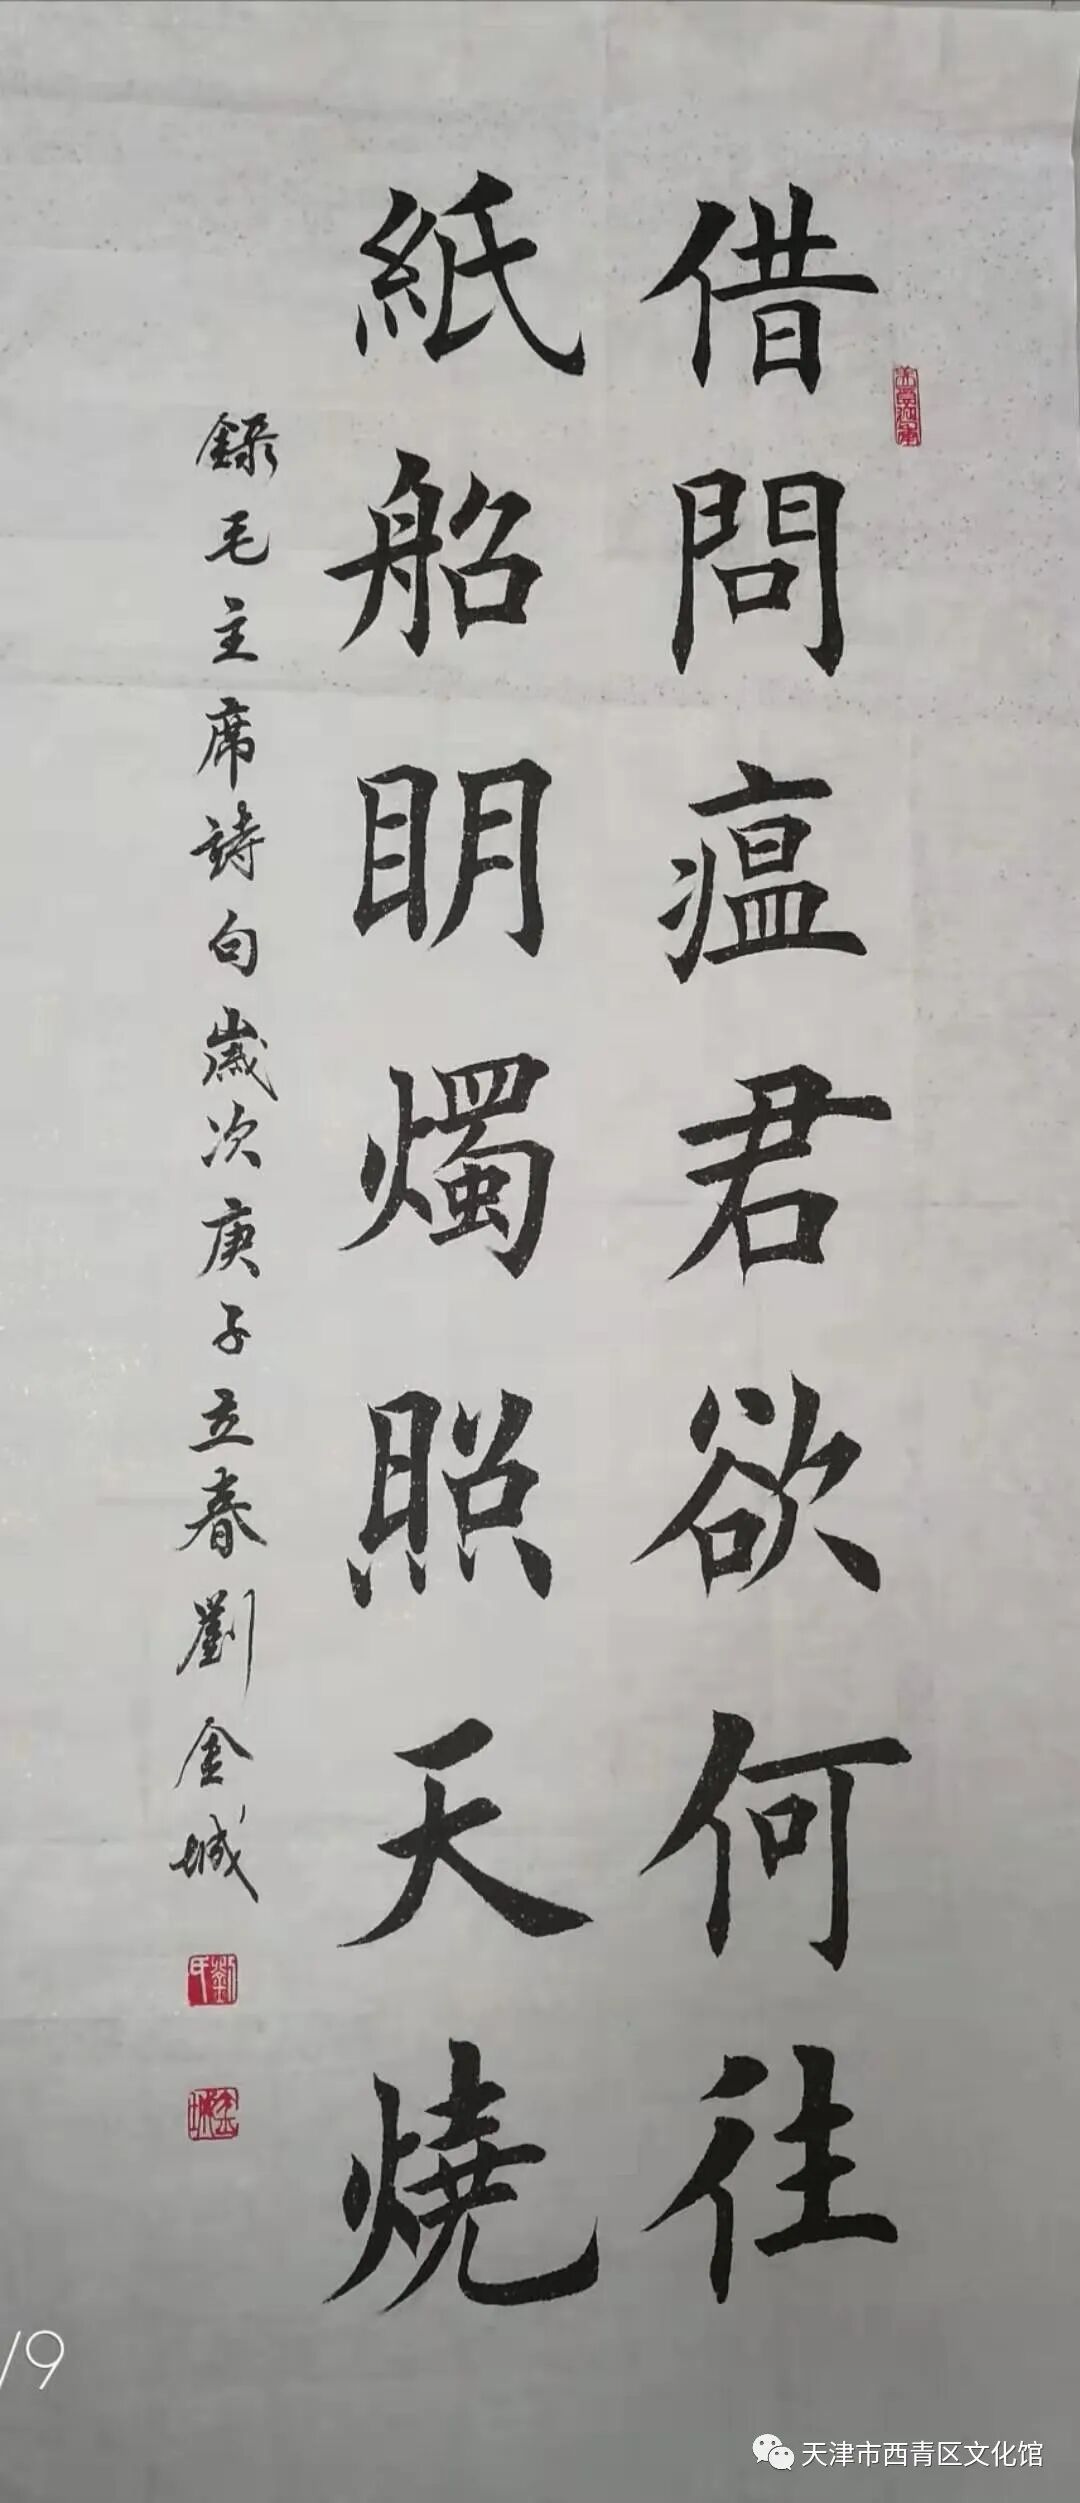 借問瘟君欲何往
紙船眀燭照天燒
錄毛主席詩句歲次庚子立春劉金城
劉氏
金城
19
天津市西青区文化馆